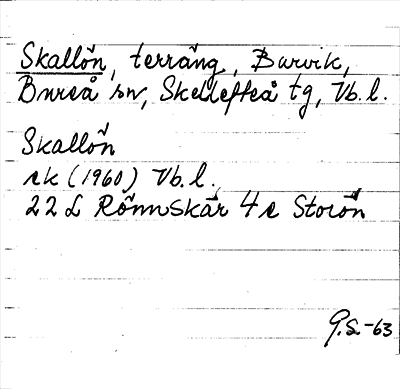 Skallön, terräng, Burvik,
Bureå sn, Skellefteå tg, Vb. l.
Skallön
ek (1960) Vb. l.
22 L Rönnskär 4 e Storön
G.S.-63